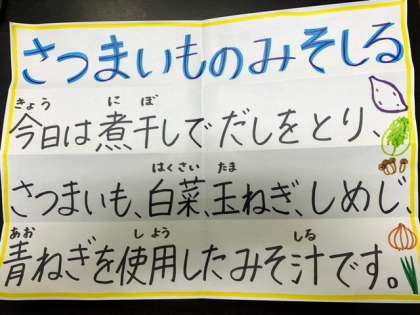 さつまいものみそしる
きょう に ぼ
今日は煮干しでだしをとり、
はくさい たま
さつまいも、白菜、玉ねぎ、しめじ、
あお しよう しる
青ねぎを使用したみそ汁です。